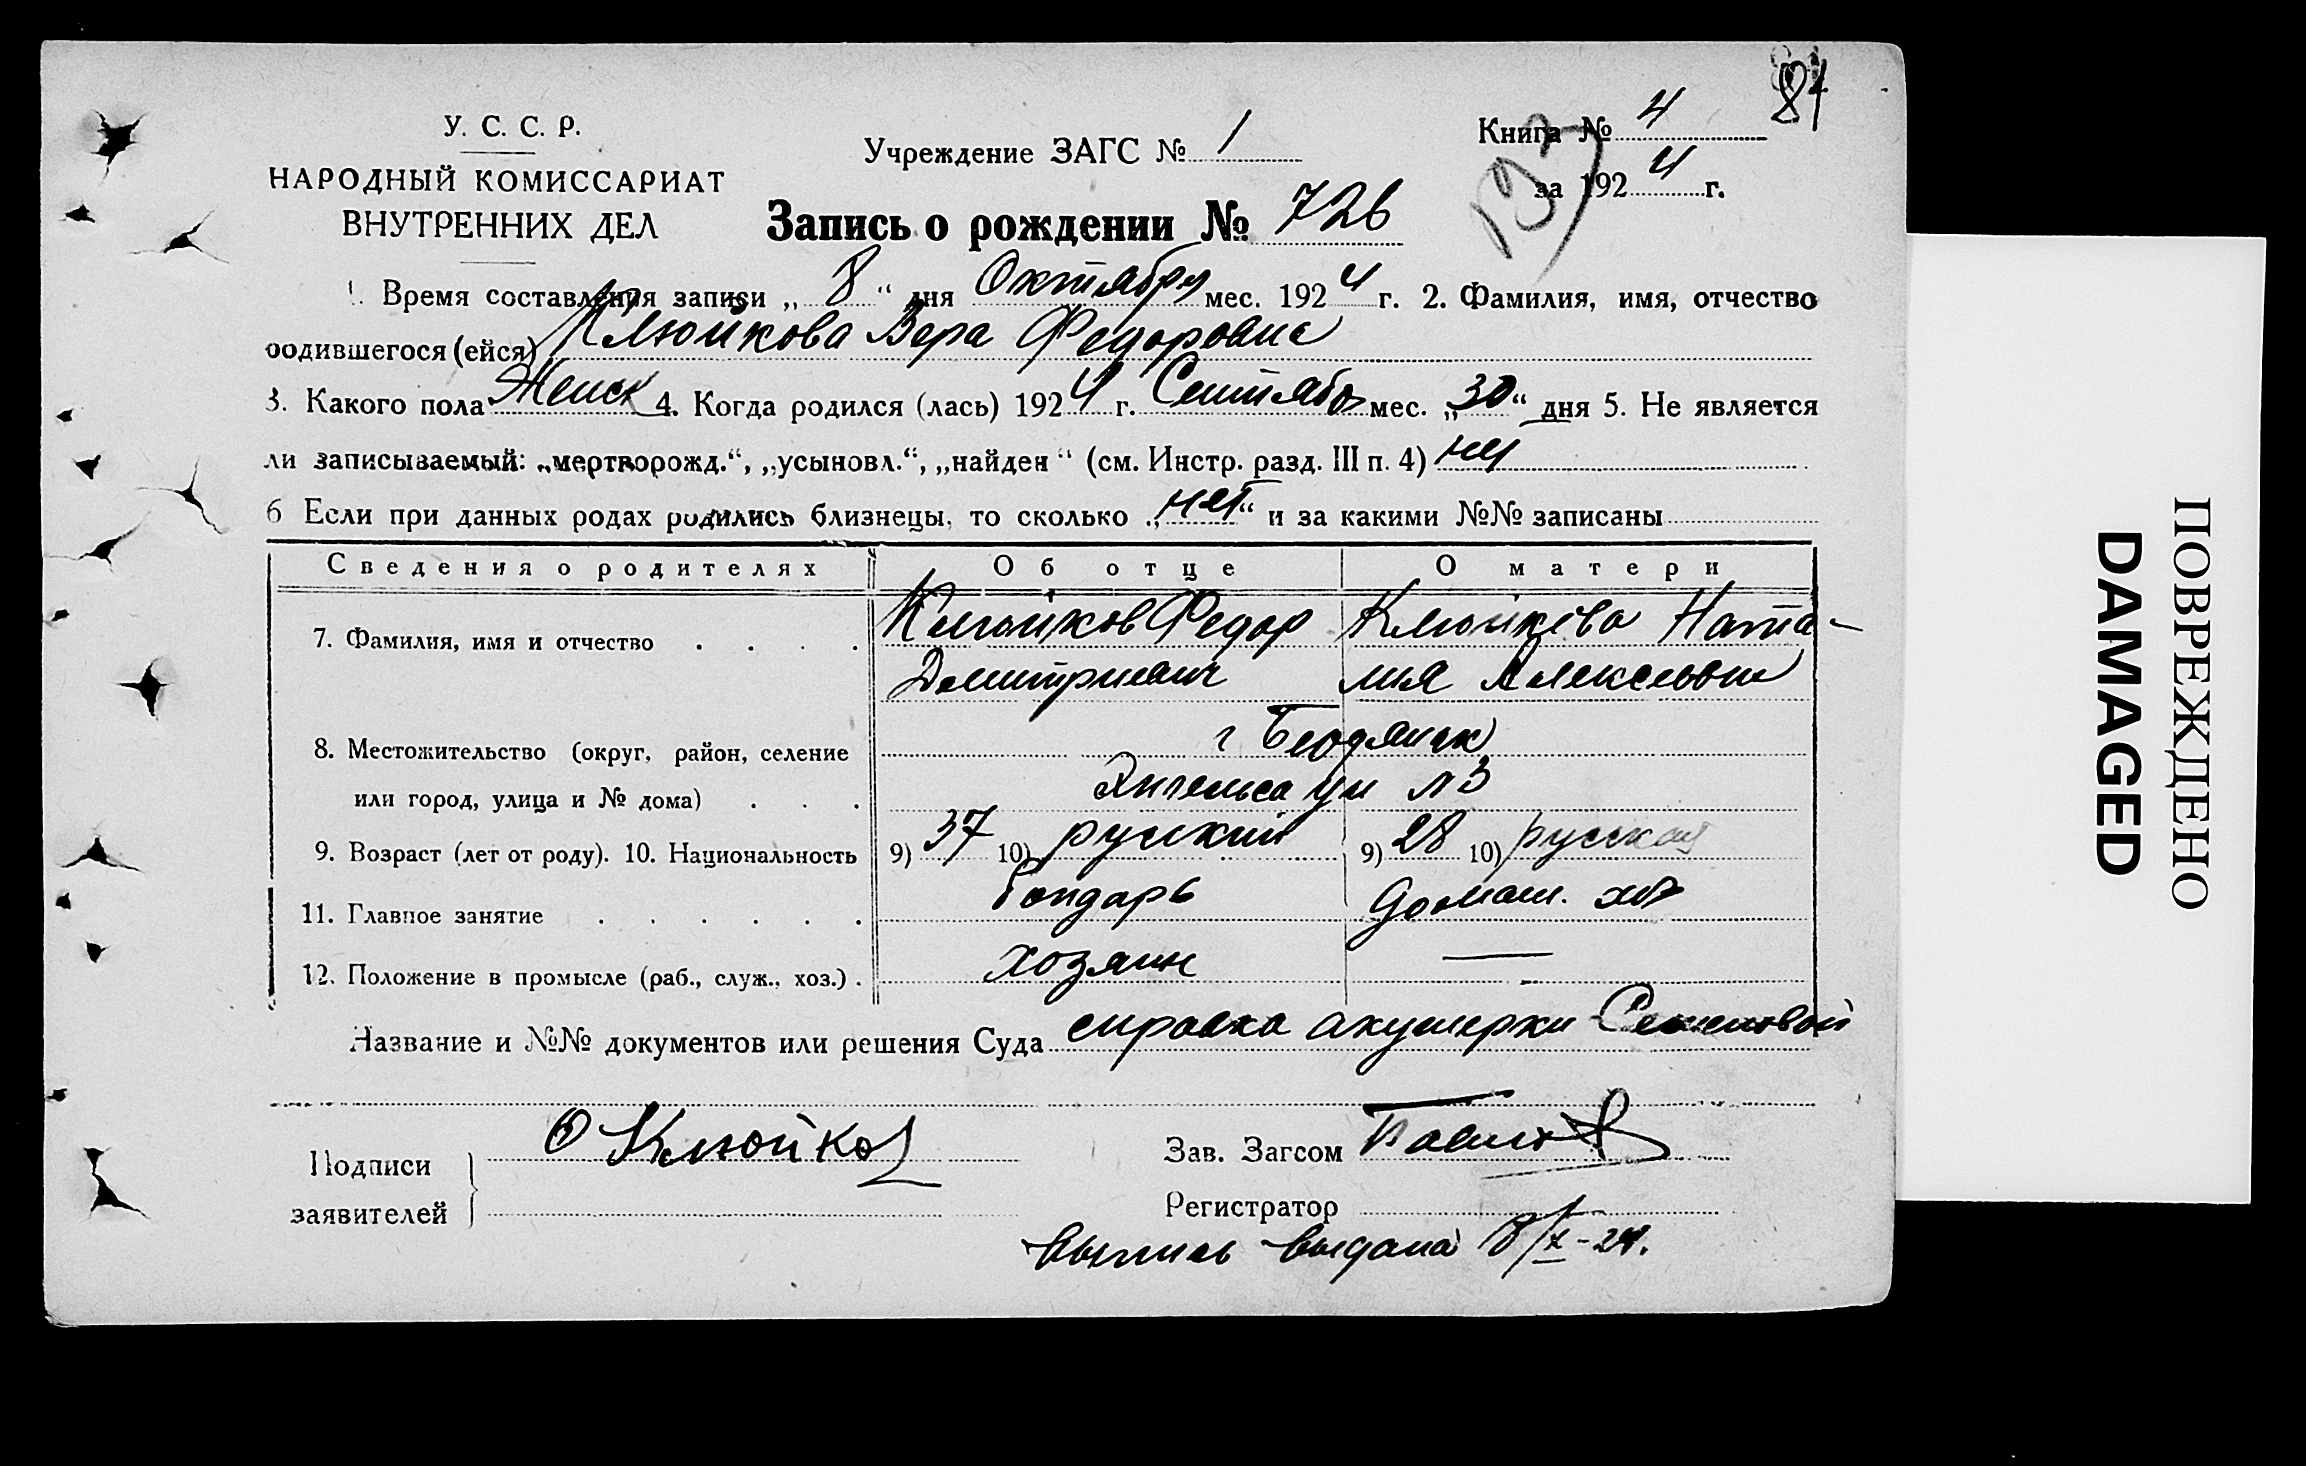 81
У. С. С. Р.
НАРОДНЫЙ КОМИССАРИАТ
ВНУТРЕННИХ ДЕЛ
Учреждение ЗАГС № 1
Книга № 4
за 1924 г.
Запись о рождении № 726
1. Время составления записи „ 8 “ дня Октября мес. 1924 г. 2. Фамилия, имя, отчество
родившегося (ейся) Клюйкова Вера Федоровна
3. Какого пола Женск 4. Когда родился (лась) 1924 г. Сентябр мес. „30“ дня 5. Не является
ли записываемый: „мертворожд.“, „усыновл.“, „найден“ (см. Инстр. разд. III п. 4) нет
6 Если при данных родах родились близнецы, то сколько „нет“ и за какими №№ записаны
Сведения о родителях Об отце О матери
7. Фамилия, имя и отчество . . . . Клюйков Федор Клюйкова Ната-
Дмитриевич лия Алексеевна
8. Местожительство (округ, район, селение г Бердянск
или город, улица и № дома) . . . Энгельса ул № 3
9. Возраст (лет от роду). 10. Национальность 9) 37 10) русский 9) 28 10) русская
11. Главное занятие . . . . . . Бондарь домаш. хоз
12. Положение в промысле (раб., служ., хоз.) . хозяин —
Название и №№ документов или решения Суда справка акушерки Семеновой
Подписи заявителей Ф Клюйков
Зав. Загсом
Регистратор
Выпись выдана 8/X-24.
ПОВРЕЖДЕНО
DAMAGED